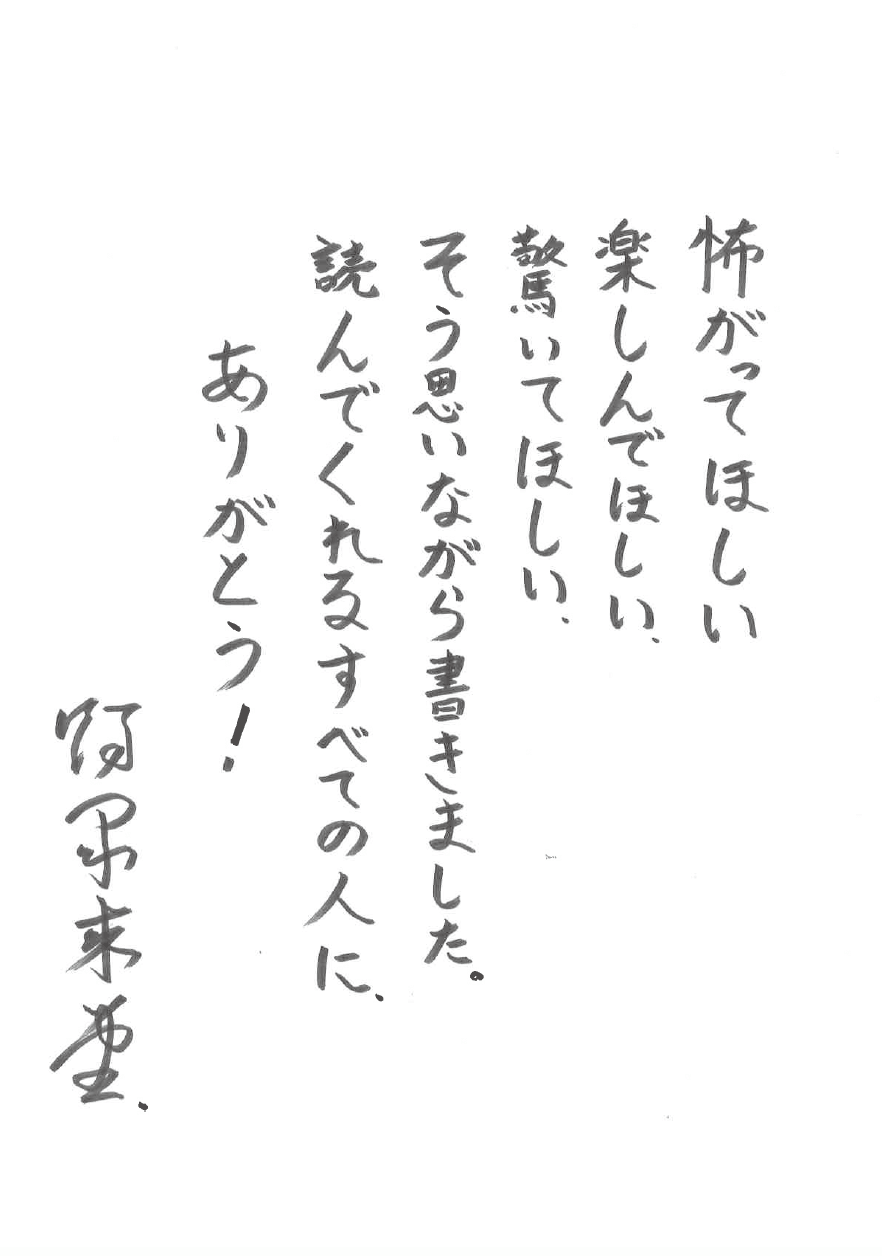 怖がってほしい
楽しんでほしい、
驚いてほしい、
そう思いながら書きました。
読んでくれるすべての人に、
ありがとう！
阿泉来堂.